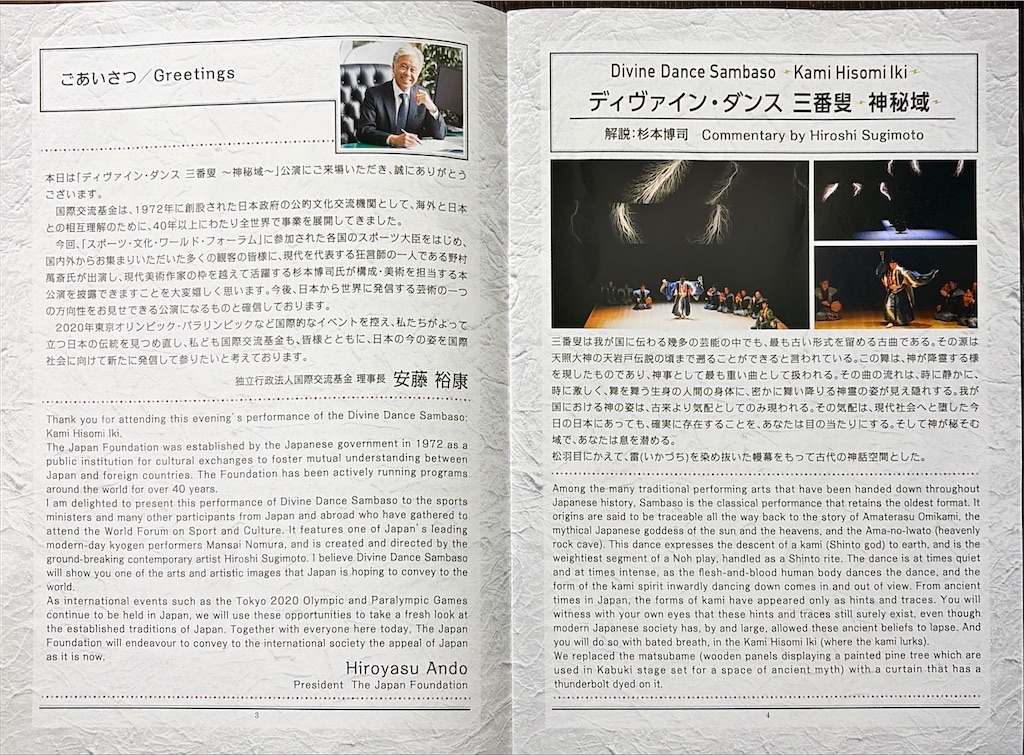 ごあいさつ／Greetings
本日は「ディヴァイン・ダンス 三番叟 〜神秘域〜」公演にご来場いただき、誠にありがとう
ございます。
国際交流基金は、1972年に創設された日本政府の公的文化交流機関として、海外と日本
との相互理解のために、40年以上にわたり全世界で事業を展開してきました。
今回、「スポーツ・文化・ワールド・フォーラム」に参加された各国のスポーツ大臣をはじめ、
国内外からお集まりいただいた多くの観客の皆様に、現代を代表する狂言師の一人である野村
萬斎氏が出演し、現代美術作家の枠を越えて活躍する杉本博司氏が構成・美術を担当する本
公演を披露できますことを大変嬉しく思います。今後、日本から世界に発信する芸術の一つ
の方向性をお見せできる公演になるものと確信しております。
2020年東京オリンピック・パラリンピックなど国際的なイベントを控え、私たちがよって
立つ日本の伝統を見つめ直し、私ども国際交流基金も、皆様とともに、日本の今の姿を国際
社会に向けて新たに発信して参りたいと考えております。
独立行政法人国際交流基金 理事長 安藤 裕康
Thank you for attending this evening's performance of the Divine Dance Sambaso:
Kami Hisomi Iki.
The Japan Foundation was established by the Japanese government in 1972 as a
public institution for cultural exchanges to foster mutual understanding between
Japan and foreign countries. The Foundation has been actively running programs
around the world for over 40 years.
I am delighted to present this performance of Divine Dance Sambaso to the sports
ministers and many other participants from Japan and abroad who have gathered to
attend the World Forum on Sport and Culture. It features one of Japan's leading
modern-day kyogen performers Mansai Nomura, and is created and directed by the
ground-breaking contemporary artist Hiroshi Sugimoto. I believe Divine Dance Sambaso
will show you one of the arts and artistic images that Japan is hoping to convey to the
world.
As international events such as the Tokyo 2020 Olympic and Paralympic Games
continue to be held in Japan, we will use these opportunities to take a fresh look at
the established traditions of Japan. Together with everyone here today, The Japan
Foundation will endeavour to convey to the international society the appeal of Japan
as it is now.
Hiroyasu Ando
President The Japan Foundation
3
Divine Dance Sambaso Kami Hisomi Iki
ディヴァイン・ダンス 三番叟 神秘域
解説：杉本博司 Commentary by Hiroshi Sugimoto
三番叟は我が国に伝わる幾多の芸能の中でも、最も古い形式を留める古曲である。その源は
天照大神の天岩戸伝説の頃まで遡ることができると言われている。この舞は、神が降霊する様
を現したものであり、神事として最も重い曲として扱われる。その曲の流れは、時に静かに、
時に激しく、舞を舞う生身の人間の身体に、密かに舞い降りる神霊の姿が見え隠れする。我が
国における神の姿は、古来より気配としてのみ現われる。その気配は、現代社会へと堕した今
日の日本にあっても、確実に存在することを、あなたは目の当たりにする。そして神が秘そむ
域で、あなたは息を潜める。
松羽目にかえて、雷(いかづち)を染め抜いた幔幕をもって古代の神話空間とした。
Among the many traditional performing arts that have been handed down throughout
Japanese history, Sambaso is the classical performance that retains the oldest format. It
origins are said to be traceable all the way back to the story of Amaterasu Omikami, the
mythical Japanese goddess of the sun and the heavens, and the Ama-no-Iwato (heavenly
rock cave). This dance expresses the descent of a kami (Shinto god) to earth, and is the
weightiest segment of a Noh play, handled as a Shinto rite. The dance is at times quiet
and at times intense, as the flesh-and-blood human body dances the dance, and the
form of the kami spirit inwardly dancing down comes in and out of view. From ancient
times in Japan, the forms of kami have appeared only as hints and traces. You will
witness with your own eyes that these hints and traces still surely exist, even though
modern Japanese society has, by and large, allowed these ancient beliefs to lapse. And
you will do so with bated breath, in the Kami Hisomi Iki (where the kami lurks).
We replaced the matsubame (wooden panels displaying a painted pine tree which are
used in Kabuki stage set for a space of ancient myth) with a curtain that has a
thunderbolt dyed on it.
4